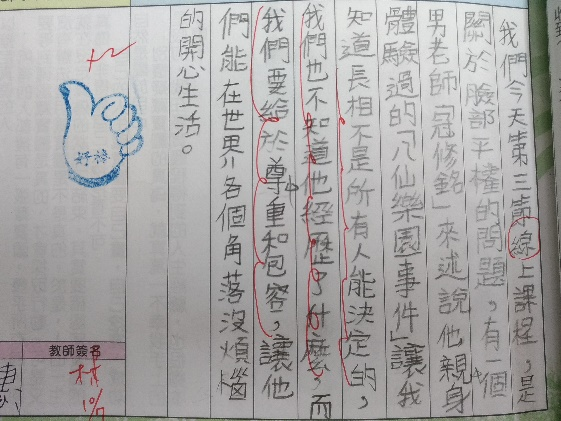 我們今天第三節線上課程，是
關於臉部平權的問題，有一個
男老師「冠修銘」來述說他親身
體驗過的「八仙樂園事件」讓我
知道長相不是所有人能決定的，
我們也不知道他經歷了什麼，而
我們要給於尊重和包容，讓他
們能在世界各個角落沒煩惱
的開心生活。
+2
好棒
教師簽名
林